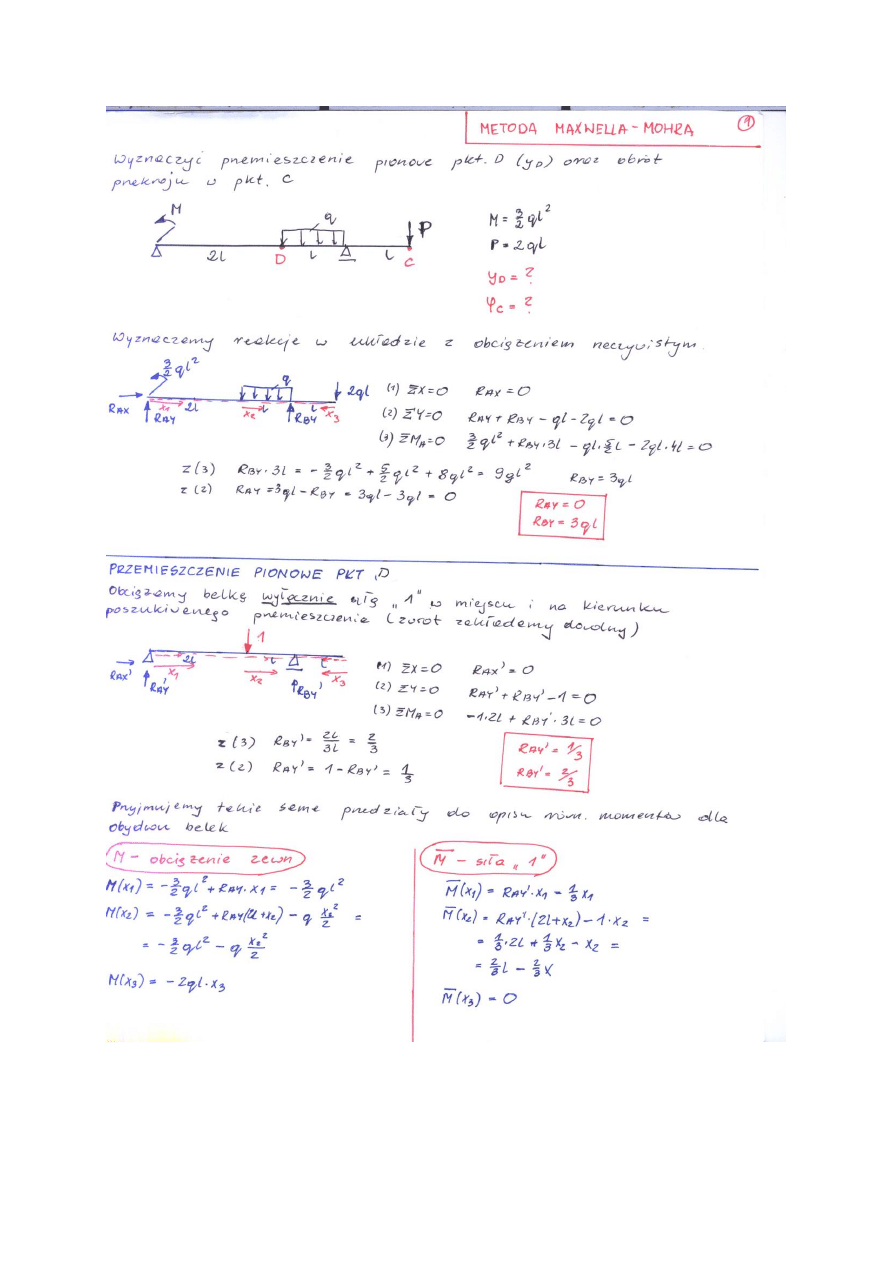 METODA MAXWELLA-MOHRA 1
Wyznaczyć przemieszczenie pionowe pkt. D (yD) oraz obrót
przekroju w pkt. C
M q P
2l D l l C
M = 3/2 ql²
P = 2ql
yD = ?
φC = ?
Wyznaczamy reakcje w układzie z obciążeniem rzeczywistym.
3/2 ql² q 2ql
RAX RAY x1 2l x2 l RBY l x3
(1) ΣX=0 RAX = 0
(2) ΣY=0 RAY + RBY - ql - 2ql = 0
(3) ΣMA=0 3/2 ql² + RBY·3l - ql·5/2 l - 2ql·4l = 0
z (3) RBY·3l = -3/2 ql² + 5/2 ql² + 8ql² = 9ql² RBY = 3ql
z (2) RAY = 3ql - RBY = 3ql - 3ql = 0
RAY = 0
RBY = 3ql
PRZEMIESZCZENIE PIONOWE PKT D
Obciążamy belkę wyłącznie siłą „1" w miejscu i na kierunku
poszukiwanego przemieszczenia (zwrot zakładamy dowolny)
1
RAX' RAY' x1 2l x2 l RBY' l x3
(1) ΣX=0 RAX' = 0
(2) ΣY=0 RAY' + RBY' - 1 = 0
(3) ΣMA=0 -1·2l + RBY'·3l = 0
z (3) RBY' = 2l/3l = 2/3
z (2) RAY' = 1 - RBY' = 1/3
RAY' = 1/3
RBY' = 2/3
Przyjmujemy takie same przedziały do opisu równ. momentów dla
obydwu belek
M - obciążenie zewn
M(x1) = -3/2 ql² + RAY·x1 = -3/2 ql²
M(x2) = -3/2 ql² + RAY(2l+x2) - q x2²/2 =
= -3/2 ql² - q x2²/2
M(x3) = -2ql·x3
M̅ - siła „1"
M̅(x1) = RAY'·x1 = 1/3 x1
M̅(x2) = RAY'·(2l+x2) - 1·x2 =
= 1/3·2l + 1/3 x2 - x2 =
= 2/3 l - 2/3 x
M̅(x3) = 0